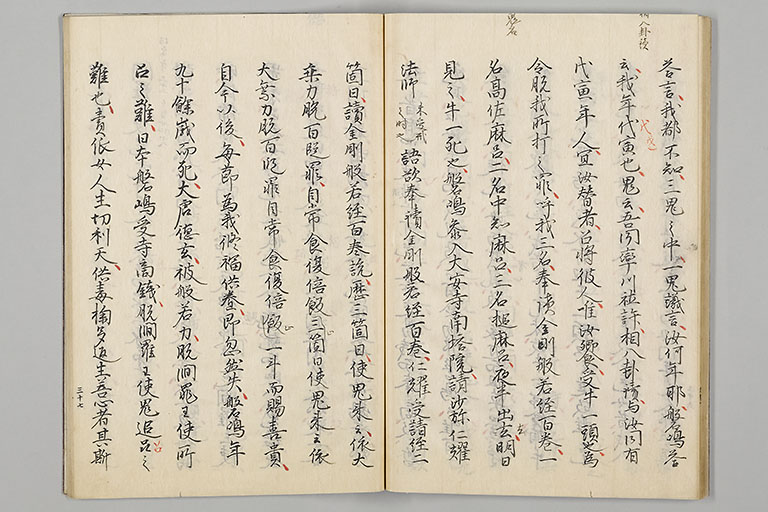 答言我都不知三鬼之中一鬼議言汝何年耶磐嶋答
云我年代寅也鬼云吾聞率川社許相八卦讀与汝同有
戊寅年人宜汝替者召將彼人唯汝饗受牛一頭為
令脱我所打之罪呼我三名奉讀金剛般若経百巻一
名高佐麻呂二名中知麻呂三名槌麻呂夜半出去明日
見之牛一死也磐嶋参入大安寺南塔院請沙弥仁耀
法師未受戒之時也語欲奉讀金剛般若経百巻仁耀受請経二
箇日讀金剛般若経百巻訖歴三箇日使鬼来云依大
乗力脱百段罪自常食復倍飯三箇日使鬼来云依
大乗力脱百段罪自常食復倍飯一斗而賜喜貴
自今以後毎節為我修福供養即忽然失磐嶋年
九十餘歳而死大唐徳玄被般若力脱閻羅王使所
召之難日本磐嶋受寺商錢脱閻羅王使鬼追召之
難也賣依女人生忉利天供毒掬多返生善心者其斯
三十七